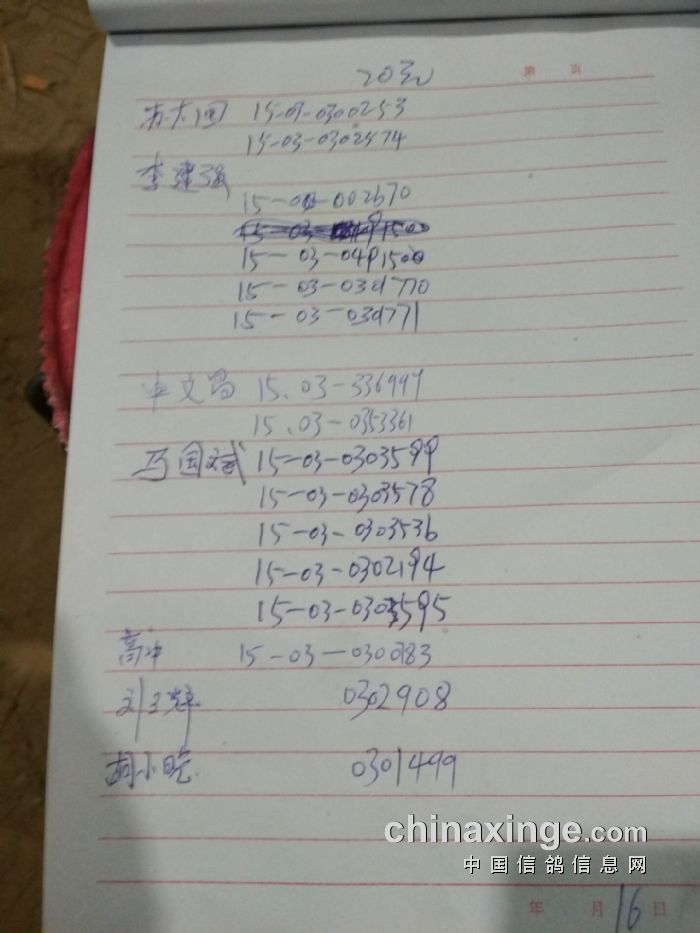 20元
第 页
苏大国 15-03-0300253
15-03-0302574
李建强
15-03-002670
15-03-0491500
15-03-0301770
15-03-0301771
申文昌 15.03-336997
15.03-0353361
马国斌 15-03-0303599
15-03-0303578
15-03-0303536
15-03-0302194
15-03-0303595
高冲 15-03-0300783
刘王辉 0302908
胡小晓 0301499
chinaxinge.com
中国信鸽信息网
年 月16日